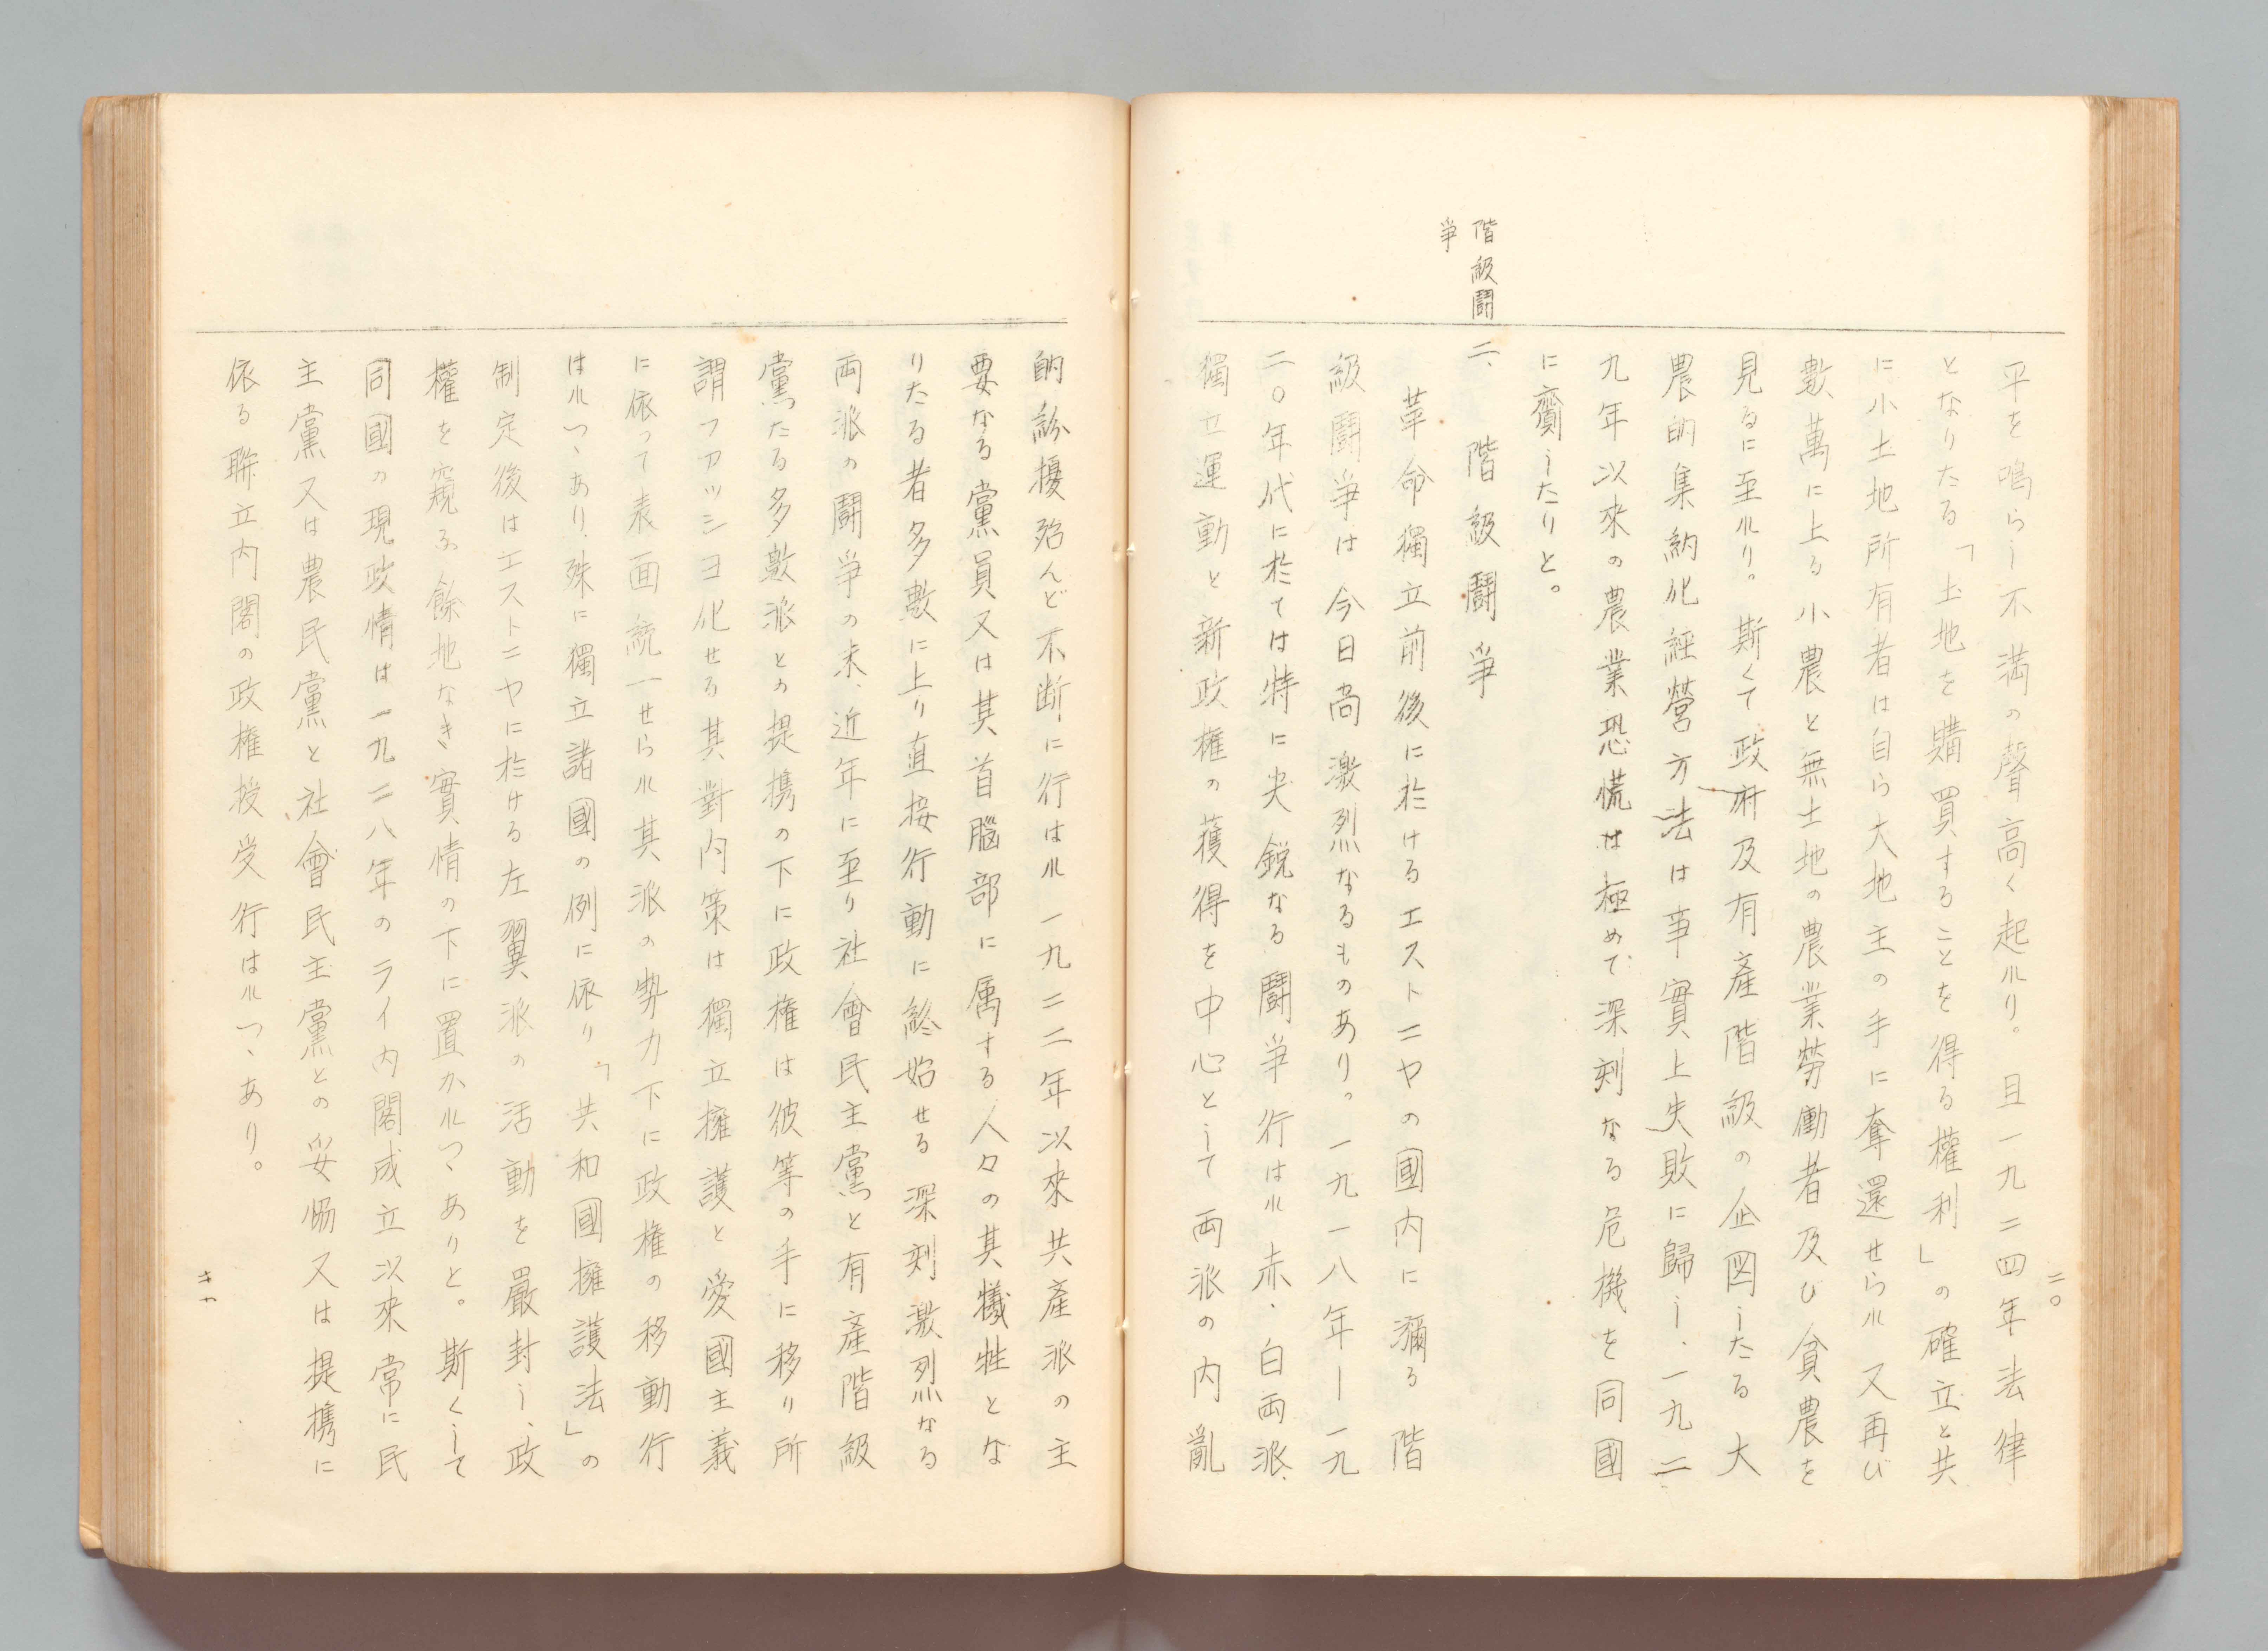 二〇
平を鳴らし不満の聲高く起れり。且一九二四年法律
となりたる「土地を購買することを得る權利」の確立と共
に小土地所有者は自ら大地主の手に奪還せられ又再び
數萬に上る小農と無土地の農業勞働者及び貧農を
見るに至れり。斯くて政府及有産階級の企図したる大
農的集納化経營方法は事實上失敗に歸し、一九二
九年以來の農業恐慌は極めて深刻なる危機を同國
に齎したりと。
階級鬪
爭
二、階級鬪爭
革命獨立前後に於けるエストニヤの國内に瀰る階
級鬪爭は今日尚激烈なるものあり。一九一八年―一九
二〇年代に於ては特に尖鋭なる鬪爭行はれ赤、白両派、
獨立運動と新政権の獲得を中心として両派の内亂
的紛擾殆んど不断に行はれ一九二二年以來共産派の主
要なる黨員又は其首腦部に属する人々の其犠牲とな
りたる者多數に上り直接行動に終始せる深刻激烈なる
両派の鬪爭の末、近年に至り社會民主黨と有産階級
黨たる多數派との提携の下に政権は彼等の手に移り所
謂フアッショ化せる其對内策は獨立擁護と愛國主義
に依って表面統一せられ其派の勢力下に政権の移動行
はれつゝあり、殊に獨立諸國の例に依り「共和國擁護法」の
制定後はエストニヤに於ける左翼派の活動を嚴封し、政
權を窺ふ餘地なき實情の下に置かれつゝありと。斯くして
同國の現政情は一九二八年のライ内閣成立以來常に民
主黨又は農民黨と社會民主黨との妥協又は提携に
依る聯立内閣の政権授受行はれつゝあり。